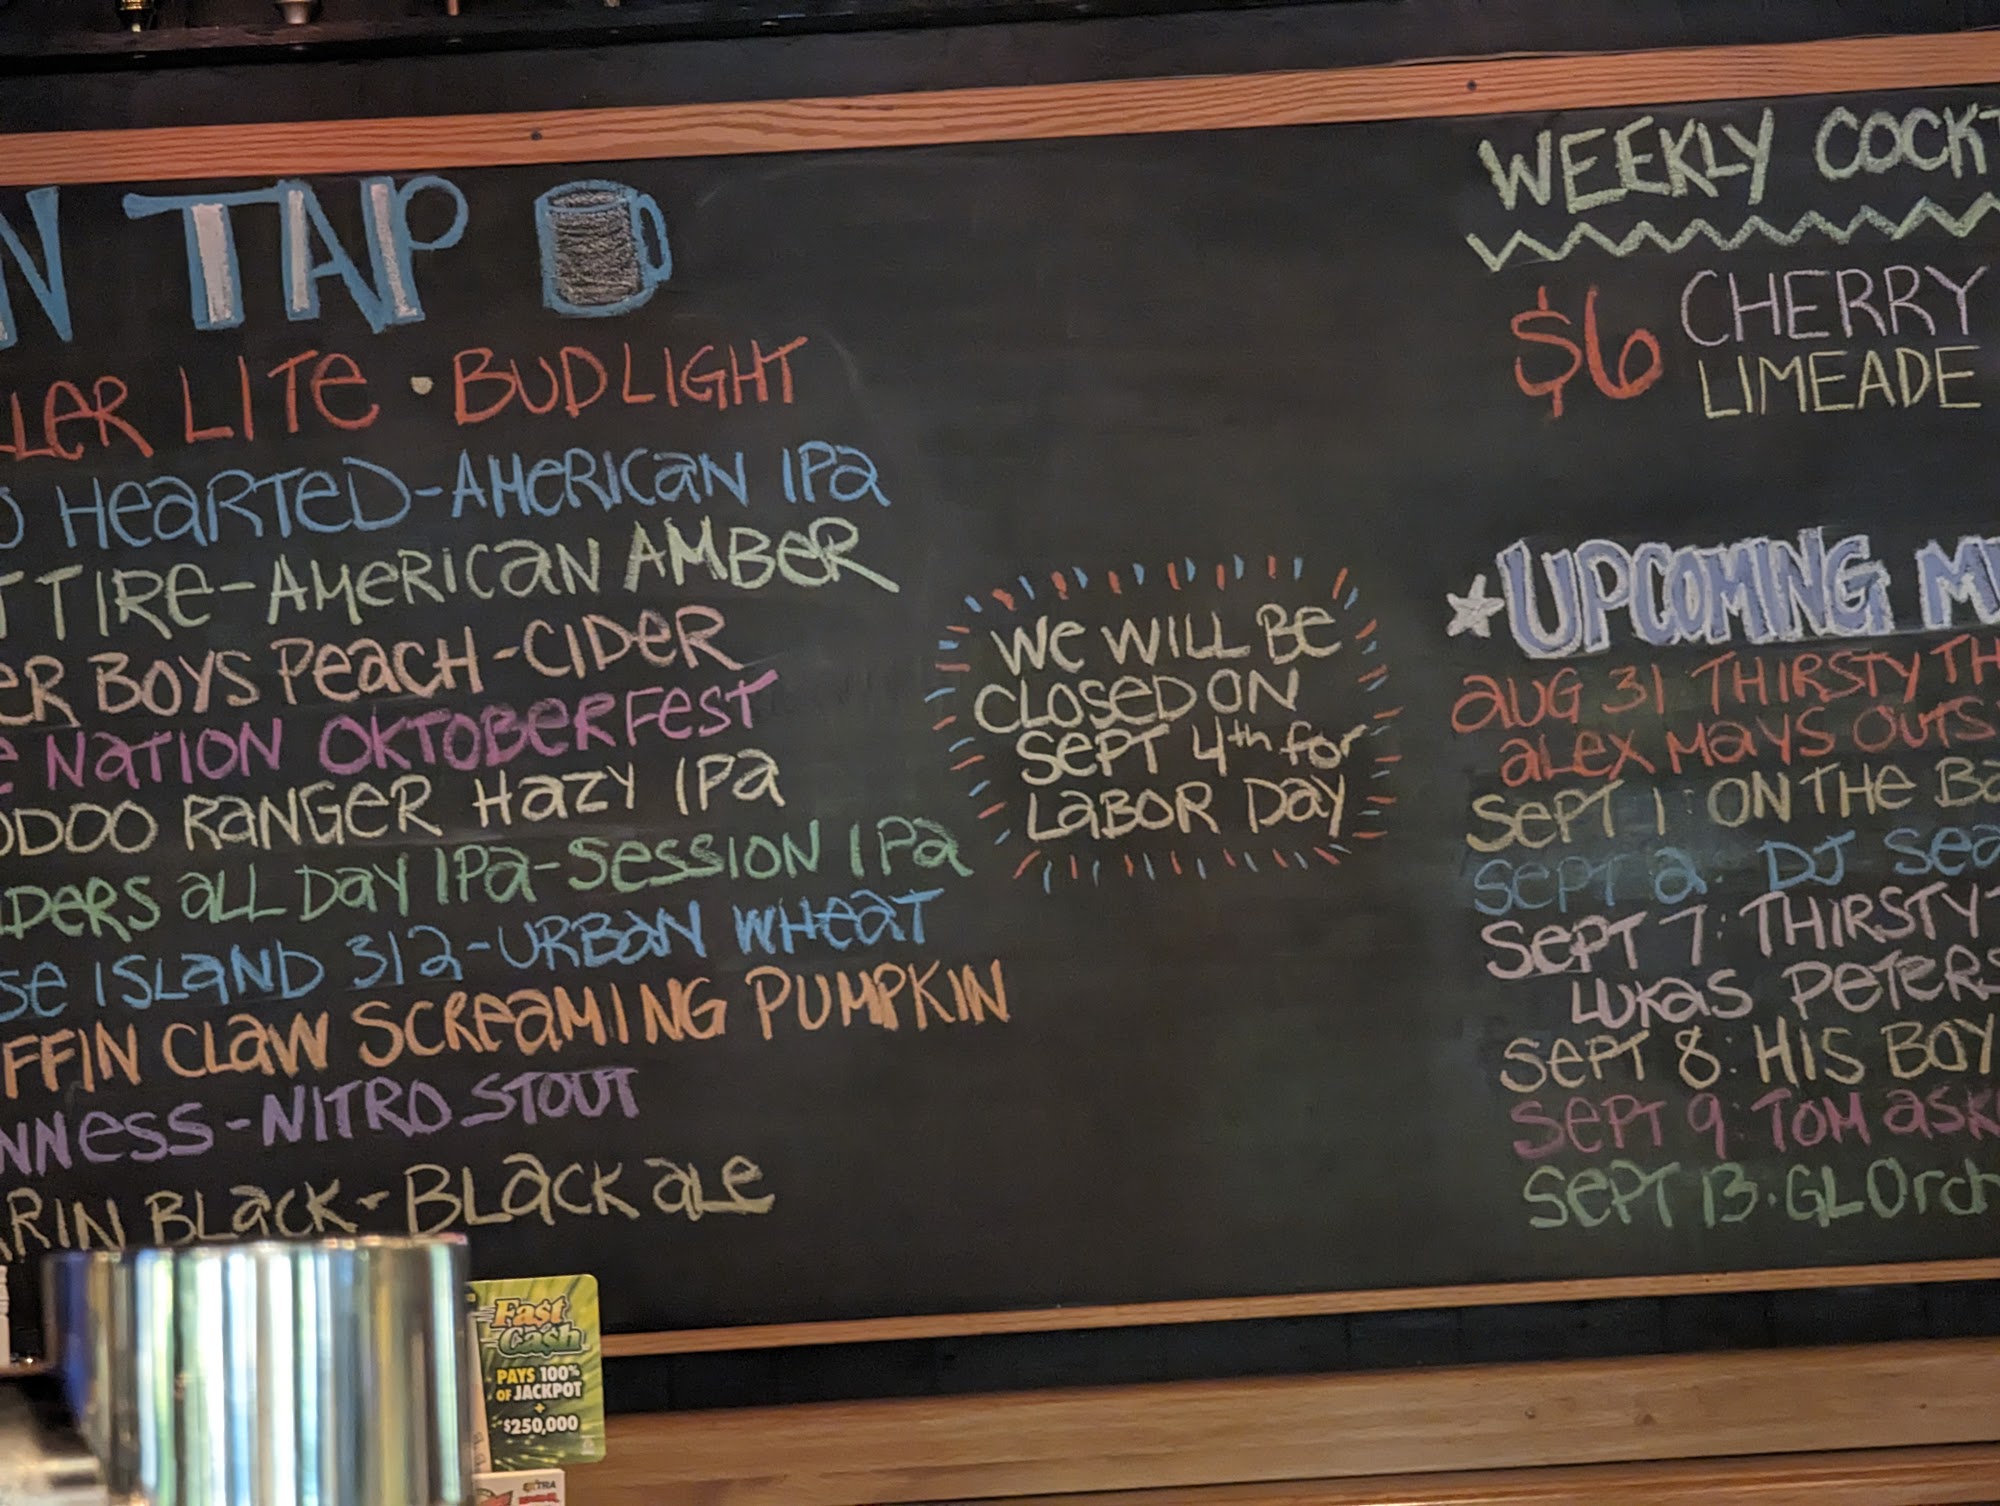 N TAP
LLER LITe • BUD LIGHT
O HeaRTeD-AMeRICaN IPa
T TIRe-AMeRICaN AMBeR
eR BOYS Peach-CIDeR
e NaTION OKTOBeRFeST
ODOO RaNGeR HaZY IPa
NDeRS aLL Day IPa-SeSSION IPa
Se ISLaND 312-URBaN WHeaT
FFIN CLaW SCReaMING PUMPKIN
NNeSS-NITRO STOUT
RIN BLaCK-BLaCK aLe
We WILL Be
CLOSeD ON
SePT 4th for
LaBOR Day
WEEKLY COCKT
$6 CHERRY
LIMEADE
UPCOMING MU
aUG 31 THIRSTY TH
aLeX MaYS OUTS
SePT 1: ON THe Ba
SePT 2: DJ Sea
SePT 7: THIRSTY-T
LUKaS PeTeRS
SePT 8: HIS BOY
SePT 9: TOM aSK
SePT 13: GLOrch
Fa$t
Ca$h
PAYS 100%
OF JACKPOT
+
$250,000
EXTRA